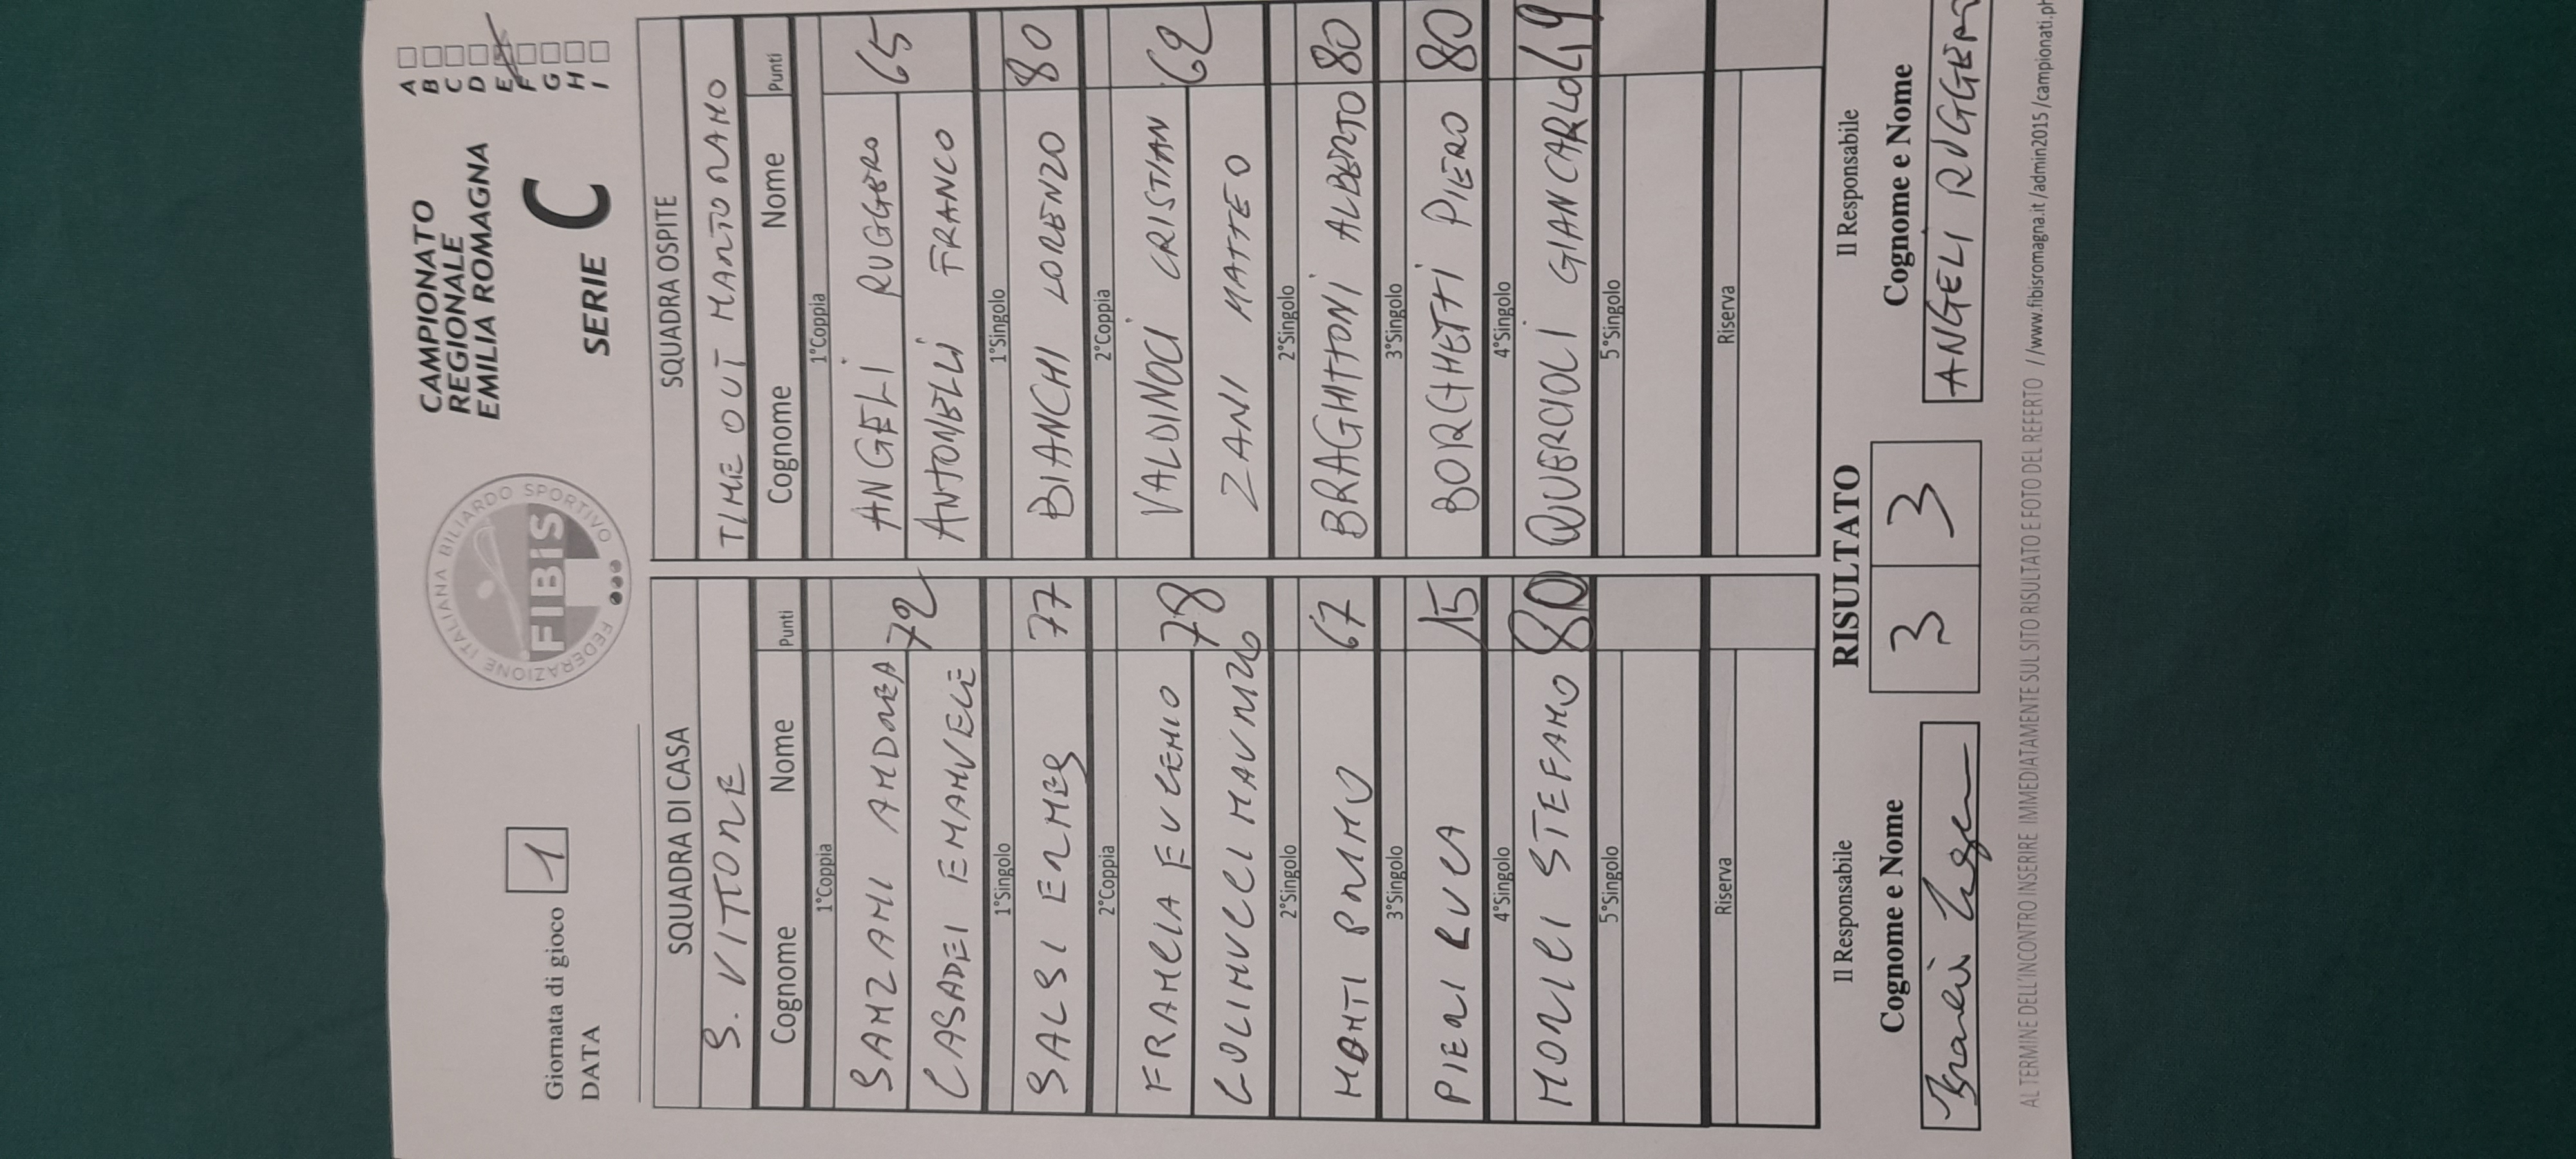 CAMPIONATO
REGIONALE
EMILIA ROMAGNA
SERIE C
A
B
C
D
E
F
G
H
I
FEDERAZIONE ITALIANA BILIARDO SPORTIVO
FIBIS
Giornata di gioco 1
DATA
SQUADRA DI CASA
S. VITTORE
Cognome Nome Punti
1°Coppia
SANZANI ANDREA 72
CASADEI EMANUELE
1°Singolo
SALSI ERMES 77
2°Coppia
FRANCIA EUGENIO 78
COLINUCCI MAURIZIO
2°Singolo
MONTI PRIMO 67
3°Singolo
PIERI LUCA 15
4°Singolo
MORICI STEFANO 80
5°Singolo
Riserva
SQUADRA OSPITE
TIME OUT MARTORANO
Cognome Nome Punti
1°Coppia
ANGELI RUGGERO 65
ANTONELLI FRANCO
1°Singolo
BIANCHI LORENZO 80
2°Coppia
VALDINOCI CRISTIAN 62
ZANI MATTEO
2°Singolo
BRAGHITTONI ALBERTO 80
3°Singolo
BORGHETTI PIERO 80
4°Singolo
QUERCIOLI GIANCARLO 49
5°Singolo
Riserva
Il Responsabile
Cognome e Nome
RISULTATO
3 3
Il Responsabile
Cognome e Nome
ANGELI RUGGERO
AL TERMINE DELL'INCONTRO INSERIRE IMMEDIATAMENTE SUL SITO RISULTATO E FOTO DEL REFERTO //www.fibisromagna.it/admin2015/campionati.ph